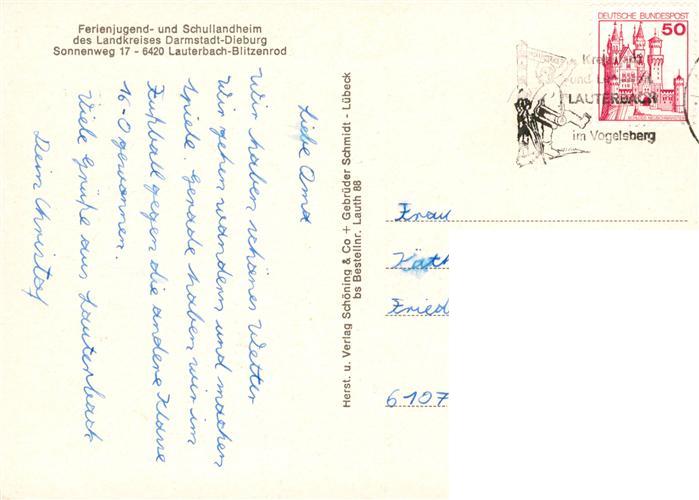 Ferienjugend- und Schullandheim
des Landkreises Darmstadt-Dieburg
Sonnenweg 17 - 6420 Lauterbach-Blitzenrod
DEUTSCHE BUNDESPOST
50
und
LAUTERBACH
im Vogelsberg
Liebe Oma
Wir haben schönes Wetter
Wir gehen wandern und machen
Spiele. Gerade haben wir im
Fußball gegen die andere Klasse
16-0 gewonnen.
Viele Grüße aus Lauterbach
Dein Christof
Herst. u. Verlag Schöning & Co + Gebrüder Schmidt - Lübeck
bs Bestellnr. Lauth 88
Frau
Käth
Fried
6107